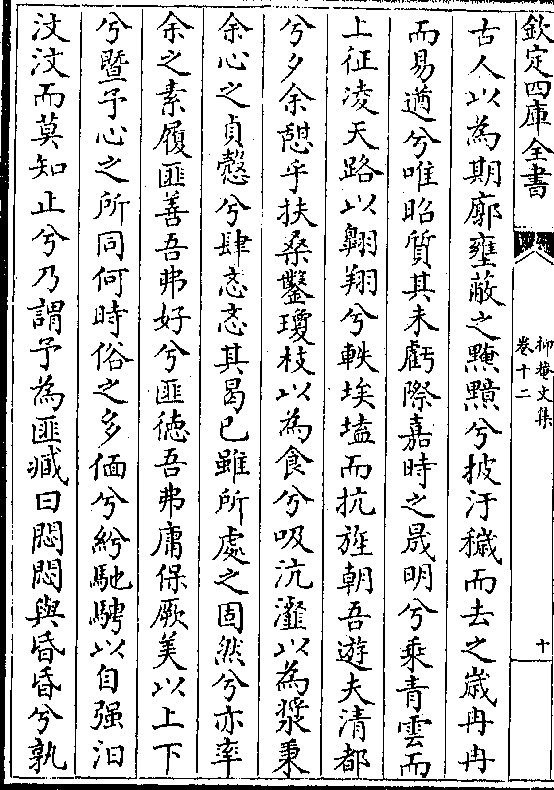 欽定四庫全書
柳菴文集
卷十二
十
古人以為期廓壅蔽之黤黮兮披汙穢而去之歳冉冉
而易遒兮唯昭質其未虧際嘉時之晟明兮乘青雲而
上征凌天路以翺翔兮軼埃壒而抗旌朝吾遊夫清都
兮夕余憇乎扶桑鑿瓊枝以為食兮吸沆瀣以為漿秉
余心之貞慤兮肆忞忞其曷已雖所處之固然兮亦率
余之素履匪善吾弗好兮匪徳吾弗庸保厥美以上下
兮曁予心之所同何時俗之多偭兮紛馳騁以自强汨
汶汶而莫知止兮乃謂予為匪臧曰悶悶與昏昏兮孰